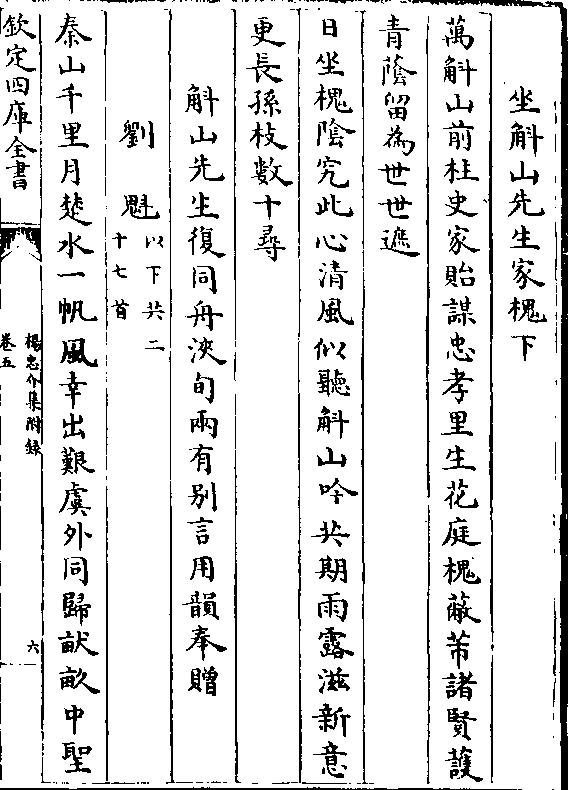 坐斛山先生家槐下
萬斛山前柱史家貽謀忠孝里生花庭槐蔽芾諸賢護
青蔭留為世世遮
日坐槐陰究此心清風似聽斛山吟共期雨露滋新意
更長孫枝數十尋
斛山先生復同舟浹旬兩有别言用韻奉贈
劉魁以下共二十七首
秦山千里月楚水一帆風幸出艱虞外同歸畎畝中聖
欽定四庫全書
楊忠介集附録
卷五
六